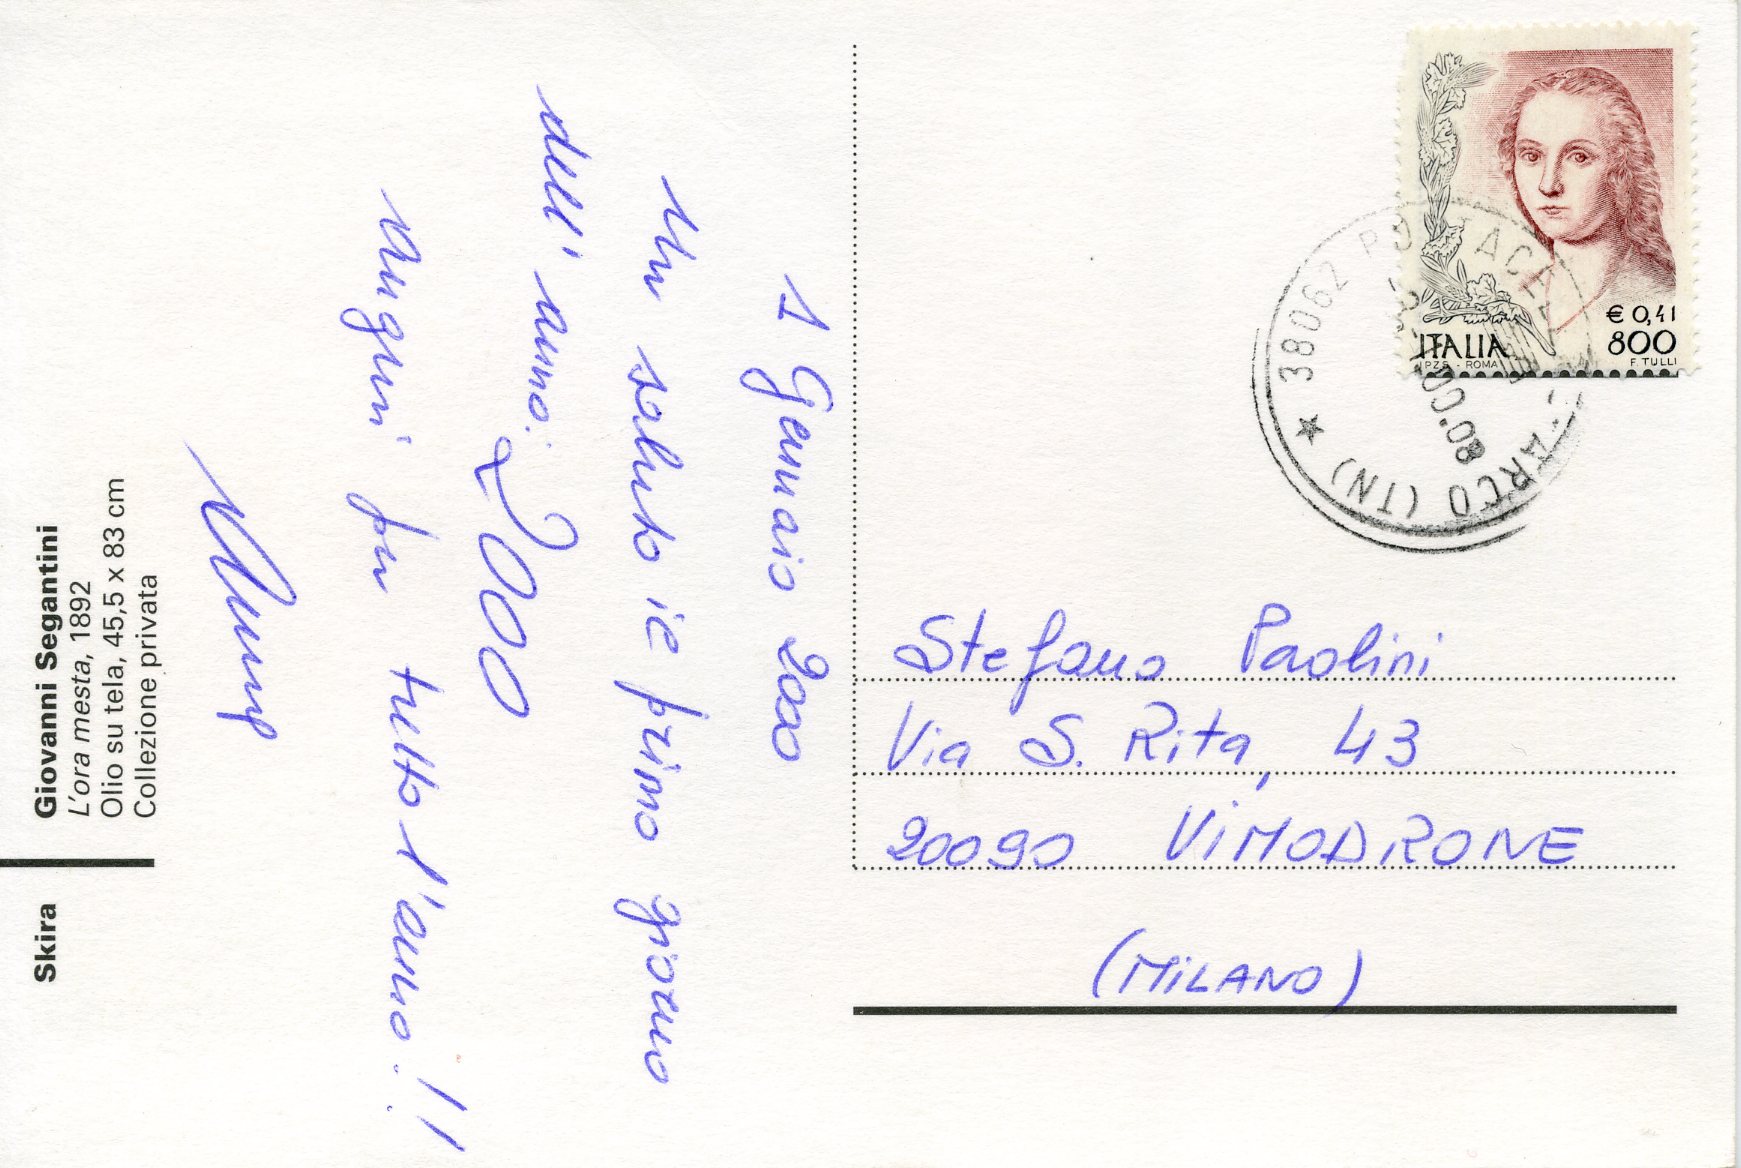 Giovanni Segantini
L'ora mesta, 1892
Olio su tela, 45,5 x 83 cm
Collezione privata
Skira
1 Gennaio 2000
Un saluto il primo giorno
dell'anno: 2000
Auguri per tutto l'anno!!
€ 0,41
ITALIA 800
I.P.Z.S. - ROMA F. TULLI
★ 38062 ARCO (TN)
Stefano Paolini
Via S. Rita, 43
20090 VIMODRONE
(MILANO)